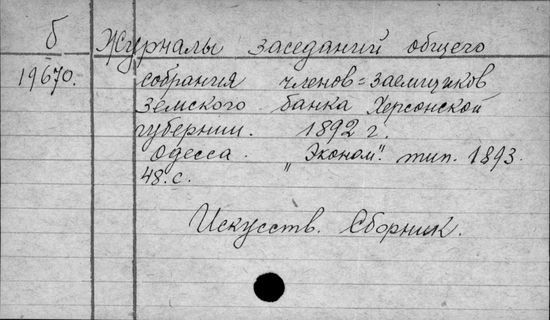 б
19670.
Журналы заседаний общего
собрания членов=заемщиков
земского банка Херсонской
губернии. 1892 г.
Одесса. "Эконом". тип. 1893.
48.с.
Искусств. Сборник.